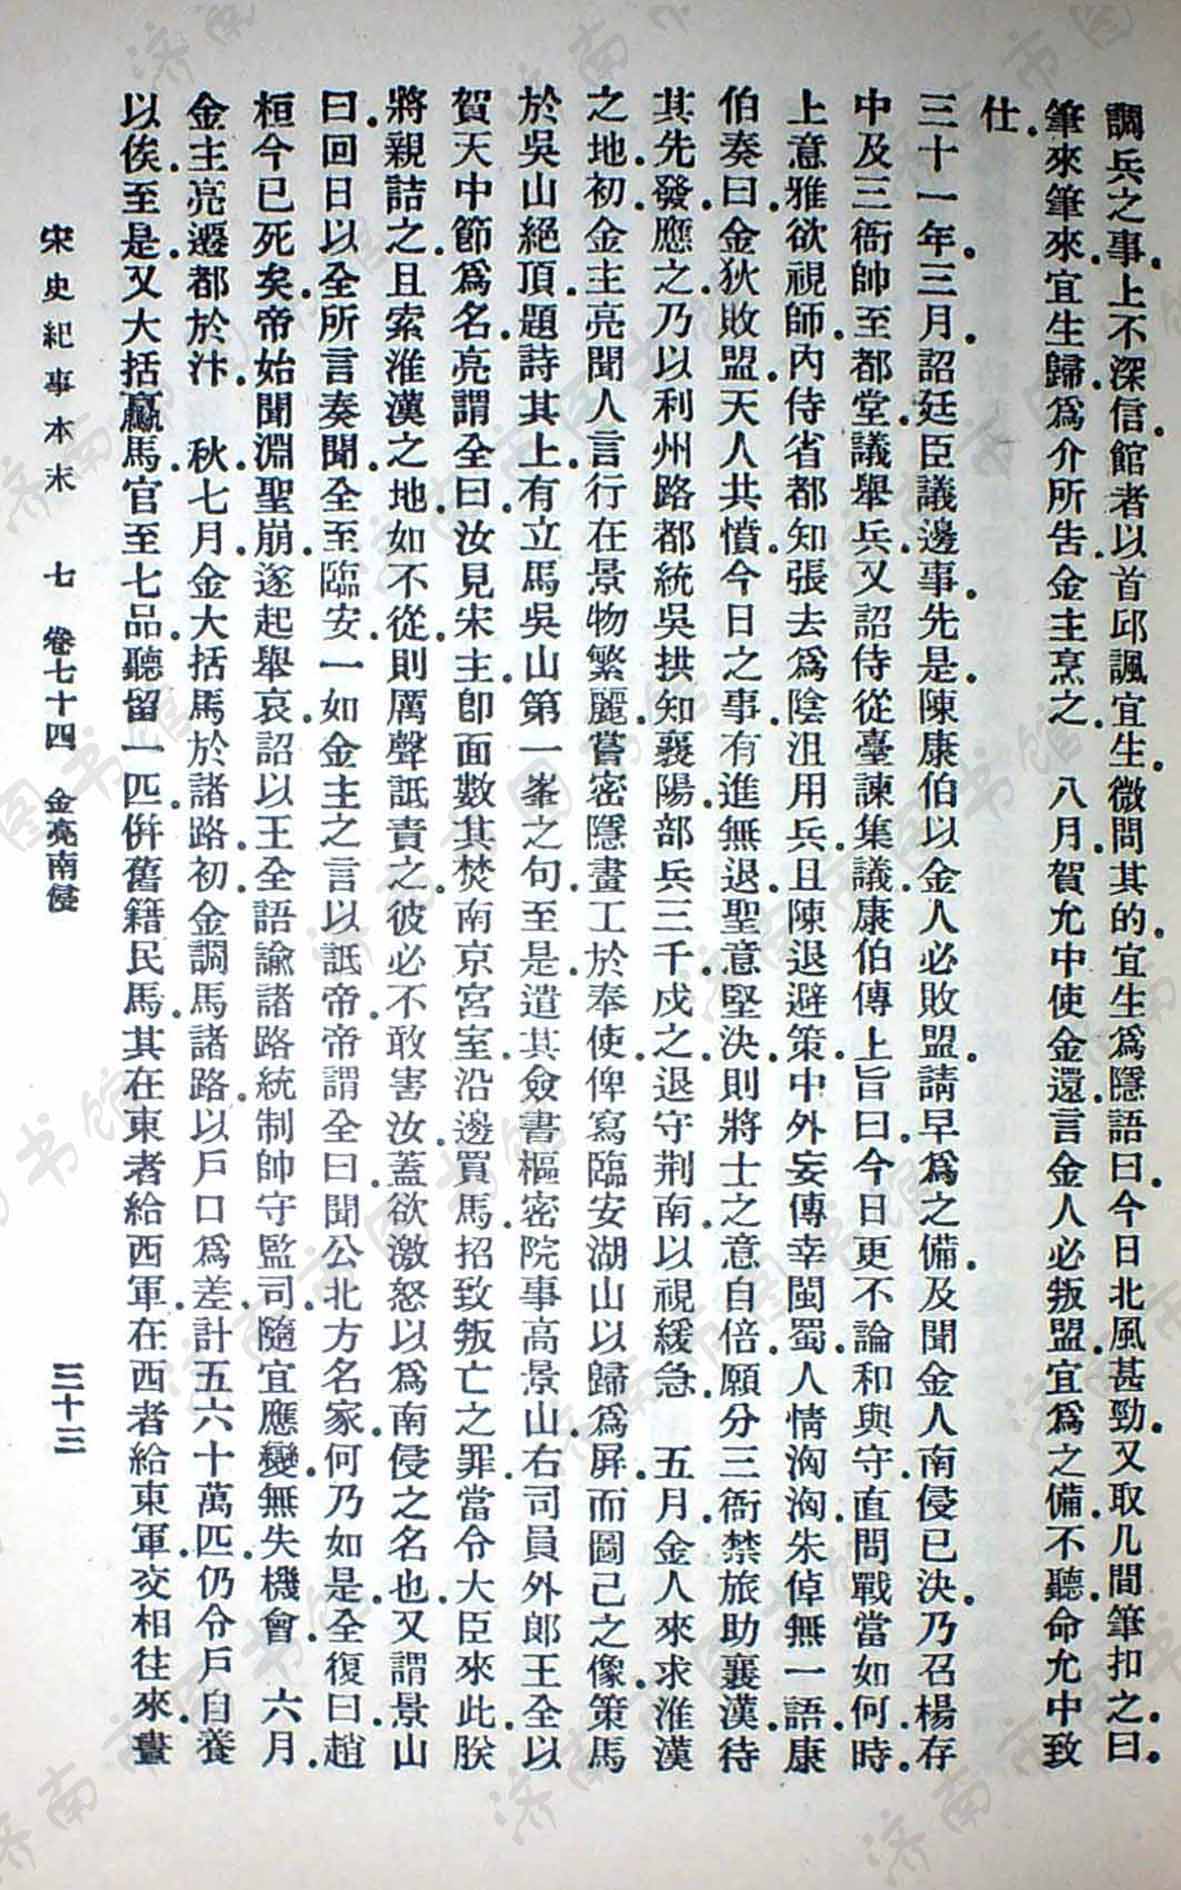 調兵之事.上不深信.館者以首邱諷宜生.微問其的.宜生爲隱語曰.今日北風甚勁.又取几間筆扣之曰.
筆來筆來.宜生歸.爲介所告.金主烹之.　八月.賀允中使金還.言金人必叛盟.宜爲之備.不聽.命允中致
仕.
三十一年.三月.詔廷臣議邊事.先是.陳康伯以金人必敗盟.請早爲之備.及聞金人南侵已決.乃召楊存
中及三衙帥至都堂.議舉兵.又詔侍從臺諫集議.康伯傳上旨曰.今日更不論和與守.直問戰當如何.時
上意雅欲視師.內侍省都知張去爲陰沮用兵.且陳退避策.中外妄傳幸閩蜀.人情洶洶.朱倬無一語.康
伯奏曰.金狄敗盟.天人共憤.今日之事.有進無退.聖意堅決.則將士之意自倍.願分三衙禁旅助襄漢.待
其先發應之.乃以利州路都統吳拱知襄陽.部兵三千戍之.退守荆南.以視緩急.　五月.金人來求淮漢
之地.初.金主亮聞人言行在景物繁麗.嘗密隱畫工於奉使.俾寫臨安湖山以歸.爲屏.而圖己之像.策馬
於吳山絕頂.題詩其上.有立馬吳山第一峯之句.至是.遣其僉書樞密院事高景山.右司員外郎王全以
賀天中節爲名.亮謂全曰.汝見宋主.卽面數其焚南京宮室.沿邊買馬.招致叛亡之罪.當令大臣來此.朕
將親詰之.且索淮漢之地.如不從.則厲聲詆責之.彼必不敢害汝.蓋欲激怒以爲南侵之名也.又謂景山
曰.回日以全所言奏聞.全至臨安.一如金主之言以詆帝.帝謂全曰.聞公北方名家.何乃如是.全復曰.趙
桓今已死矣.帝始聞淵聖崩.遂起舉哀.詔以王全語諭諸路統制帥守監司.隨宜應變.無失機會.　六月.
金主亮遷都於汴.　秋.七月.金大括馬於諸路.初.金調馬諸路.以戶口爲差.計五六十萬匹.仍令戶自養
以俟.至是.又大括驘馬.官至七品.聽留一匹.併舊籍民馬.其在東者給西軍.在西者給東軍.交相往來.晝
宋史紀事本末　七　卷七十四　金亮南侵　三十三